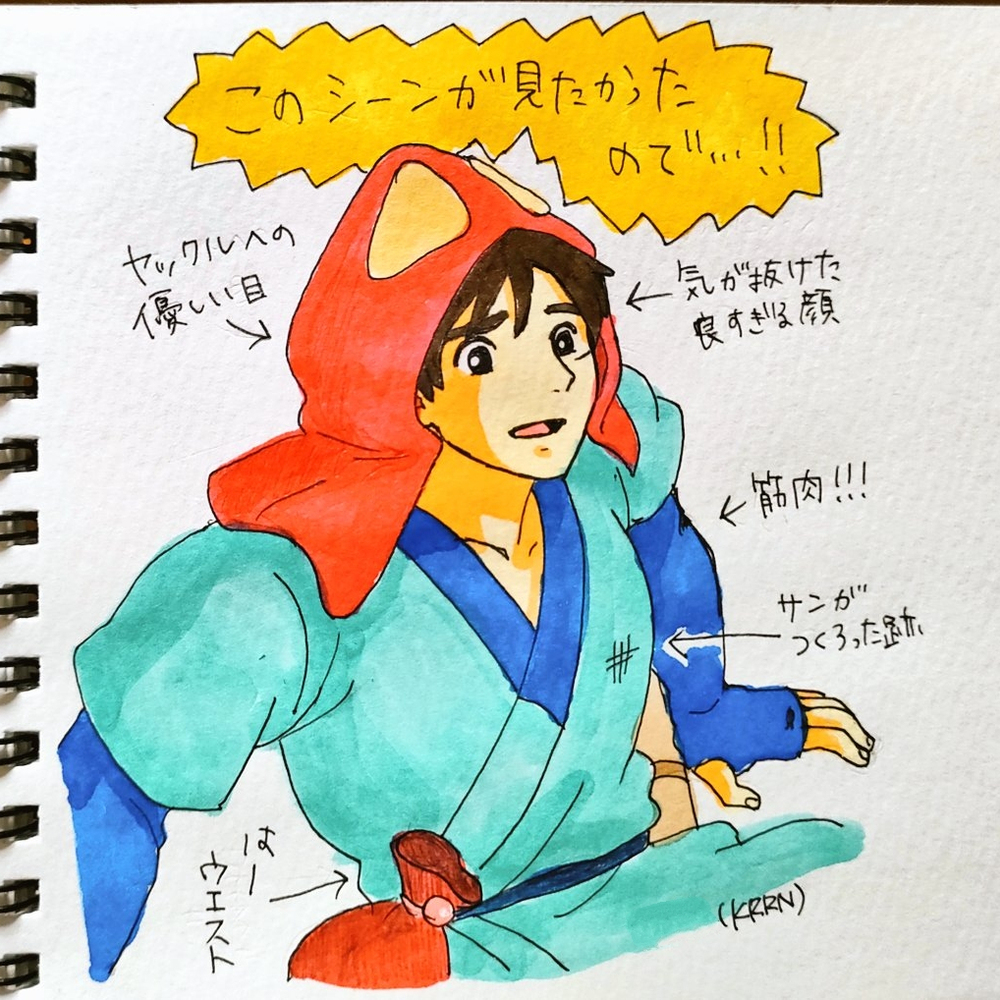 このシーンが見たかった
ので…!!
ヤックルへの
優しい目
気が抜けた
良すぎる顔
筋肉!!!
サンが
つくろった跡
はー
ウエスト
(KRRN)